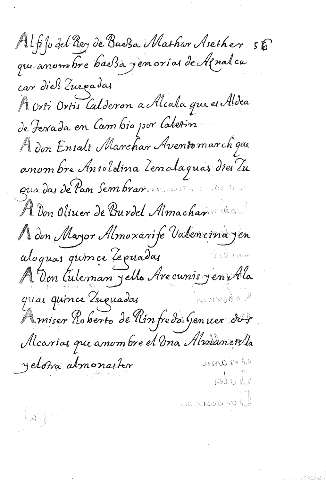 Al fijo del Rey de Baeza Mathar Asether 56
que anombre baeza yenorias de Aznalca
car diez Zugadas
A Orti Ortis Calderon a Alcala que es Aldea
de Texada en Cambio por Catetin
A don Ensalt Marchar Aventomarch que
anombre Ansoldina Zenalaquas diez Zu
gadas de Pam Sembrar
A Don Oliuer de Burdel Almachar
A don Mayor Almoxarife Valencina yen
aloquas quince Zeguadas
A Don Euleman yello Arecunis yenxAla
quas quince Zuguadas
A miser Roberto de Rinfredo Genues dos
Alcarias que anombre el Una
yelotra almonaster